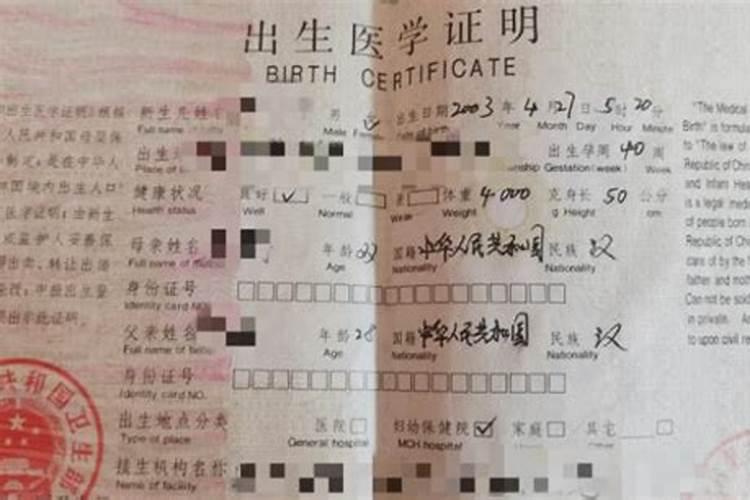 出生医学证明
BIRTH CERTIFICATE
新生儿姓名 男 女 出生日期 2003 年 4 月 27 日 5 时 20 分
Full name of Male Female Date of birth Year Month Day Hour Minute
出生 出生孕周 40 周
Place of Gestation(week) Week
健康状况 良好 ✓ 一般 差 体重 4000 克 身长 50 公分
Health status Well Normal Weak Weight g Height cm
母亲姓名 年龄 国籍 中华人民共和国 民族 汉
Full name of Age Nationality Nationality
身份证号
Identity card NO.
父亲姓名 年龄 28 国籍 中华人民共和国 民族 汉
Full name of Age Nationality Nationality
身份证号
Identity card NO.
出生地点分类 医院 妇幼保健院 ✓ 家庭 其它
Type of place General hospital MCH hospital Home Other
接生机构名称
Name of facility
出生医学证明
人民共和国母婴保
制定,是在中华人
和国境内出生人口
医学证明;由新生
或监护人妥善保
出卖、转让出借
出示此证明.
"The Medical
Birth" is formul
to "The law of
Republic of Chi
and Infant Hea
is a legal medic
of people born
Republic of Chi
care of by the
father and mot
Can not be sol
in private. A
to upon civil re
共和国卫生部